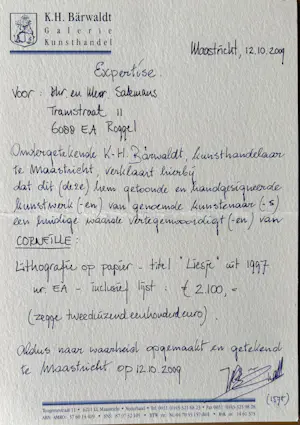 K.H. Bärwaldt
Galerie
Kunsthandel
Maastricht, 12.10.2009
Expertise.
Voor: Dhr. en Mevr
Tramstraat 11
6088 EA Roggel
Ondergetekende K.H. Bärwaldt, kunsthandelaar
te Maastricht, verklaart hierbij
dat dit (deze) hem getoonde en handgesigneerde
kunstwerk (-en) van genoemde kunstenaar (-s)
een huidige waarde vertegenwoordigt (-en) van
CORNEILLE:
Lithografie op papier - titel "Liesje" uit 1997
nr. EA - inclusief lijst: € 2.100,-
(zegge tweeduizendeenhonderd euro).
Aldus naar waarheid opgemaakt en getekend
te Maastricht op 12.10.2009
6211 LS Maastricht • Nederland • Tel.
(157E)